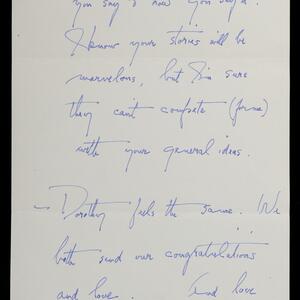 you say & how you say it.
I know your stories will be
marvelous, but I'm sure
they can't compete (for me)
with your general ideas.
— Dorothy feels the same. We
both send our congratulations
and love. And love